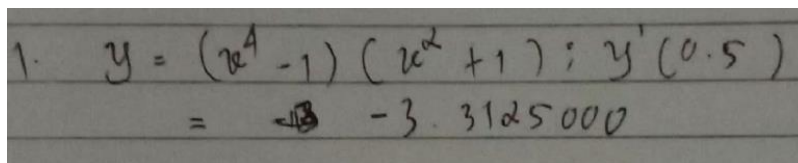 1. y = (x⁴ - 1) (x² + 1) ; y' (0.5)
= - 3.3125000